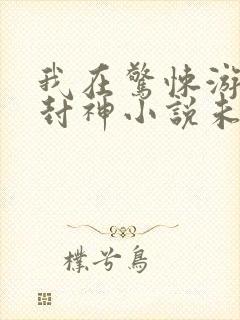 我在驚悚游
封神小說未
樸兮鳥